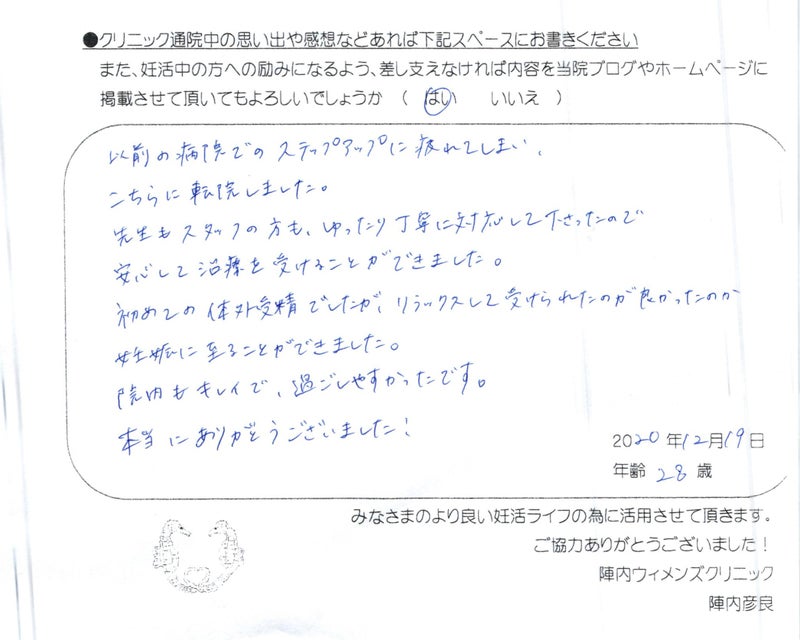 ●クリニック通院中の思い出や感想などあれば下記スペースにお書きください
また、妊活中の方への励みになるよう、差し支えなければ内容を当院ブログやホームページに
掲載させて頂いてもよろしいでしょうか （ はい いいえ ）
以前の病院でのステップアップに疲れてしまい、
こちらに転院しました。
先生もスタッフの方も、ゆったり丁寧に対応して下さったので
安心して治療を受けることができました。
初めての体外受精でしたが、リラックスして受けられたのが良かったのか
妊娠に至ることができました。
院内もキレイで、過ごしやすかったです。
本当にありがとうございました！
2020年12月19日
年齢 28 歳
みなさまのより良い妊活ライフの為に活用させて頂きます。
ご協力ありがとうございました！
陣内ウィメンズクリニック
陣内彦良